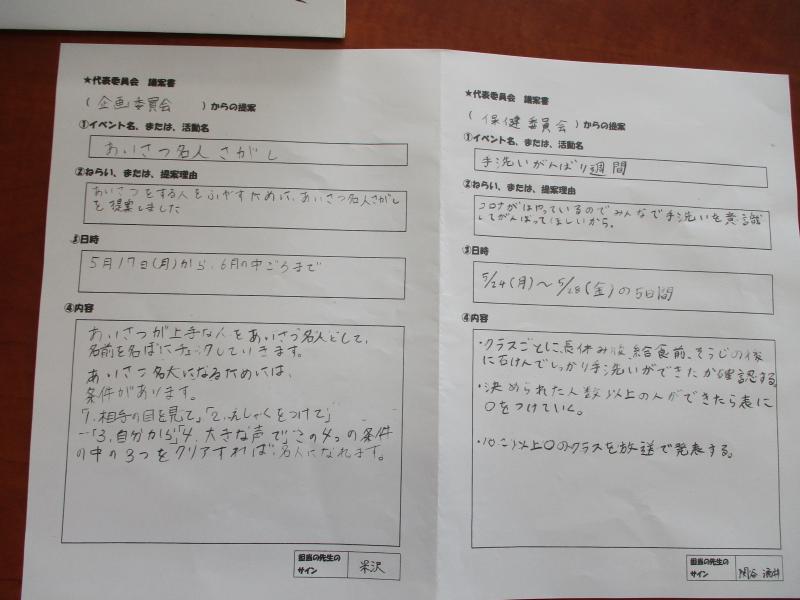 ★代表委員会 議案書
(企画委員会)からの提案
①イベント名、または、活動名
あいさつ名人さがし
②ねらい、または、提案理由
あいさつをする人をふやすために、あいさつ名人さがし
を提案しました
③日時
5月17日(月)から、6月の中ごろまで
④内容
あいさつが上手な人をあいさつ名人として、
名前を名ぼにチェックしていきます。
あいさつ名人になるためには、
条件があります。
「1.相手の目を見て」「2.えしゃくをつけて」
「3.自分から」「4.大きな声で」この4つの条件
の中の3つをクリアすれば名人になれます。
担当の先生の
サイン
米沢
★代表委員会 議案書
(保健委員会)からの提案
①イベント名、または、活動名
手洗いがんばり週間
②ねらい、または、提案理由
コロナがはやっているのでみんなで手洗いを意識
してがんばってほしいから。
③日時
5/24(月)～5/28(金)の5日間
④内容
・クラスごとに、長休み後、給食前、そうじの後
に石けんでしっかり手洗いができたか確認する
・決められた人数以上の人ができたら表に
○をつけていく。
・10こ以上○のクラスを放送で発表する。
担当の先生の
サイン
関谷